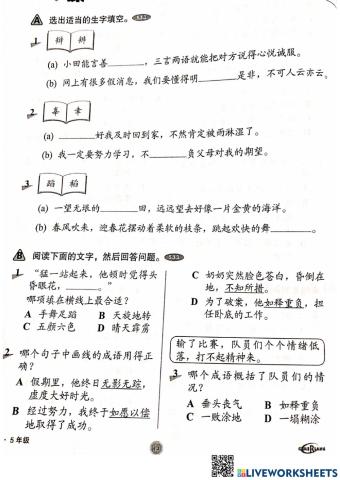 A 选出适当的生字填空。
1 辩 辨
(a) 小田能言善______，三言两语就能把对方说得心悦诚服。
(b) 网上有很多假消息，我们要懂得明______是非，不可人云亦云。
2 辜 幸
(a) ______好我及时回到家，不然肯定被雨淋湿了。
(b) 我一定要努力学习，不______负父母对我的期望。
3 蹈 稻
(a) 一望无垠的______田，远远望去好像一片金黄的海洋。
(b) 春风吹来，迎春花摆动着柔软的枝条，跳起欢快的舞______。
B 阅读下面的文字，然后回答问题。
1 “猛一站起来，他顿时觉得头
昏眼花，______。”
哪项填在横线上最合适？
A 手舞足蹈 B 天旋地转
C 五颜六色 D 晴天霹雳
2 哪个句子中画线的成语用得正
确？
A 假期里，他终日无影无踪，
虚度大好时光。
B 经过努力，我终于如愿以偿
地取得了成功。
C 奶奶突然脸色苍白，昏倒在
地，不知所措。
D 为了破案，他如释重负，担
任卧底的工作。
输了比赛，队员们个个情绪低
落，打不起精神来。
3 哪个成语概括了队员们的情
况？
A 垂头丧气 B 如释重负
C 一败涂地 D 一塌糊涂
5 年级
LIVEWORKSHEETS